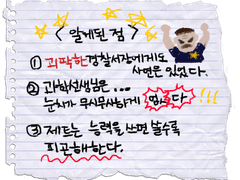 < 알게된 점 >
① 괴팍한 경찰서장에게도
사연은 있었다.
② 과학선생님은 ...
눈치가 무시무시하게 없다!!!
③ 제드는 능력을 쓰면 쓸수록
피곤해한다.